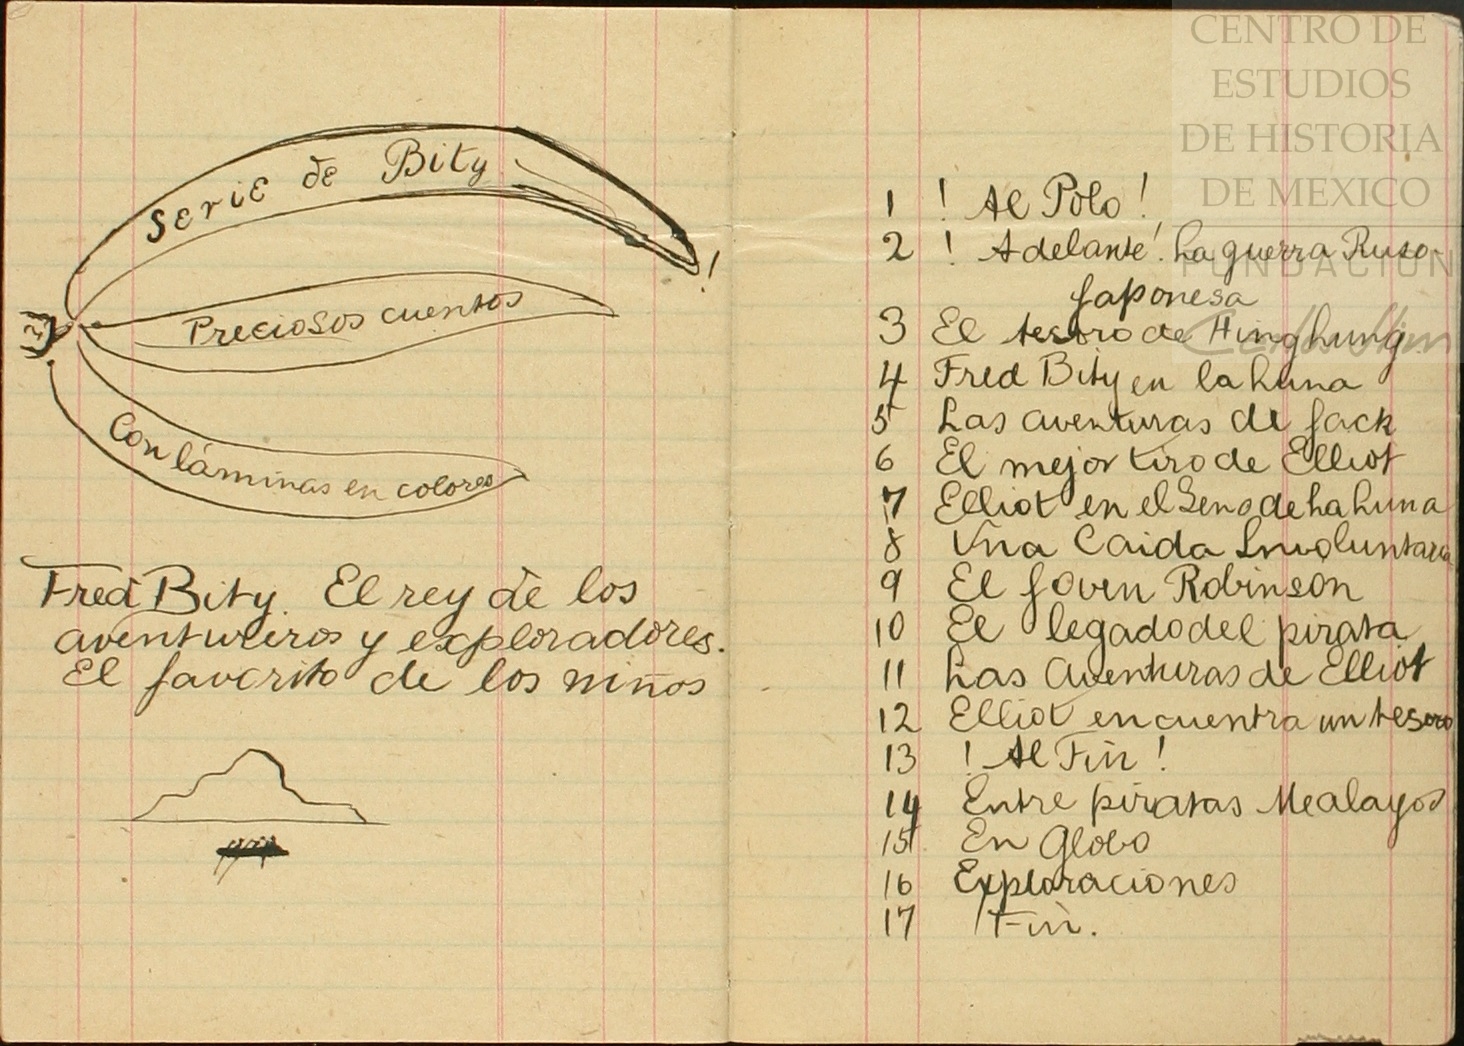 Serie de Bity!
Preciosos cuentos
Con láminas en colores
Fred Bity. El rey de los
aventureros y exploradores.
El favorito de los niños
CENTRO DE
ESTUDIOS
DE HISTORIA
DE MEXICO
FUNDACION
Carlos Slim
1 ! Al Polo!
2 ! Adelante! La guerra Ruso-
Japonesa
3 El tesoro de Hinghung
4 Fred Bity en la Luna
5 Las aventuras de Jack
6 El mejor tiro de Elliot
7 Elliot en el Seno de La Luna
8 Una Caida Involuntaria
9 El Joven Robinson
10 El legado del pirata
11 Las Aventuras de Elliot
12 Elliot encuentra un tesoro
13 ! Al Fin !
14 Entre piratas Mealayos
15 En Globo
16 Exploraciones
17 Fin.